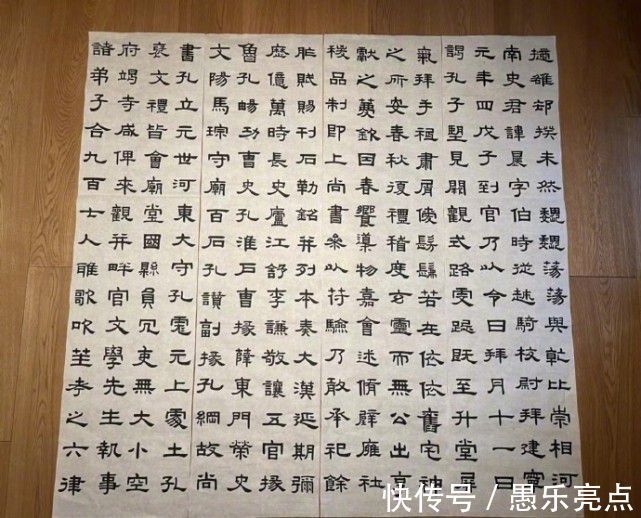 撝雒却揆未然魏魏蕩蕩與乾比崇相河
南史君諱晨字伯時從越騎校尉拜建寧
元年四戊子到官乃以令日拜月十一日
謁孔子望見闕觀式路虔跽既至升堂屏
氣拜手祗肅屑僾髣髴若在依依舊宅神
之所安春秋復禮稽度玄靈而無公出享
獻之薦欽因春饗導物嘉會述脩辟雍社
稷品制即上尚書參以符驗乃敢承祀餘
胙賦賜刊石勒銘并列本奏大漢延期彌
歷億萬時長史廬江舒李謙敬讓五官掾
魯孔暢功曹史孔淮戶曹掾薛東門榮史
文陽馬琮守廟百石孔讚副掾孔綱故尚
書孔立元世河東大守孔彪元上處土孔
褒文禮皆會廟堂國縣員冗吏無大小空
府竭寺咸俾來觀并畔官文學先生執事
諸弟子合九百士人雅歌吹笙考之六律
快传号/愚乐亮点